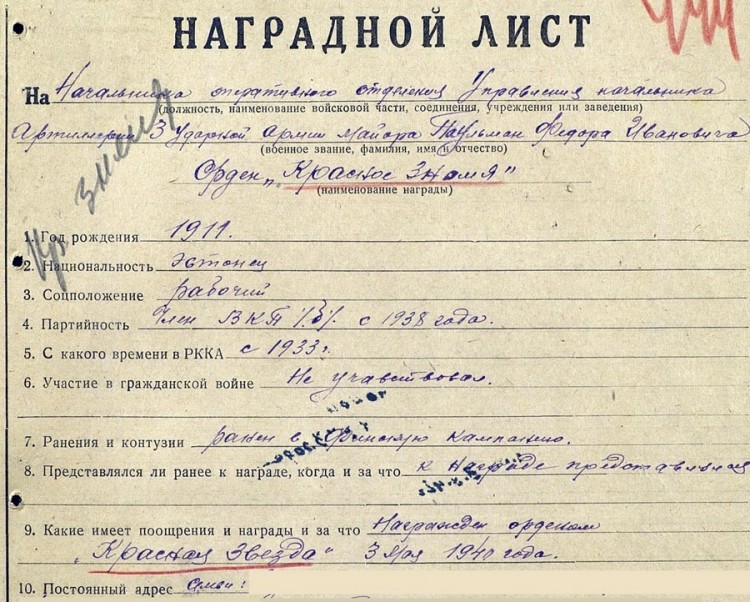 НАГРАДНОЙ ЛИСТ
На Начальника оперативного отделения Управления начальника
(должность, наименование войсковой части, соединения, учреждения или заведения)
Артиллерии 3 Ударной армии майора Паульман Федора Ивановича
(военное звание, фамилия, имя и отчество)
Орден „Красное Знамя"
(наименование награды)
Кр. знамя
1. Год рождения 1911.
2. Национальность эстонец
3. Соцположение рабочий
4. Партийность Член ВКП /б/. с 1938 года.
5. С какого времени в РККА с 1933 г.
6. Участие в гражданской войне Не учавствовал.
7. Ранения и контузии ранен в финскую кампанию.
8. Представлялся ли ранее к награде, когда и за что к награде представлялся
9. Какие имеет поощрения и награды и за что Награжден орденом
„Красная Звезда" 3 мая 1940 года.
10. Постоянный адрес семьи: